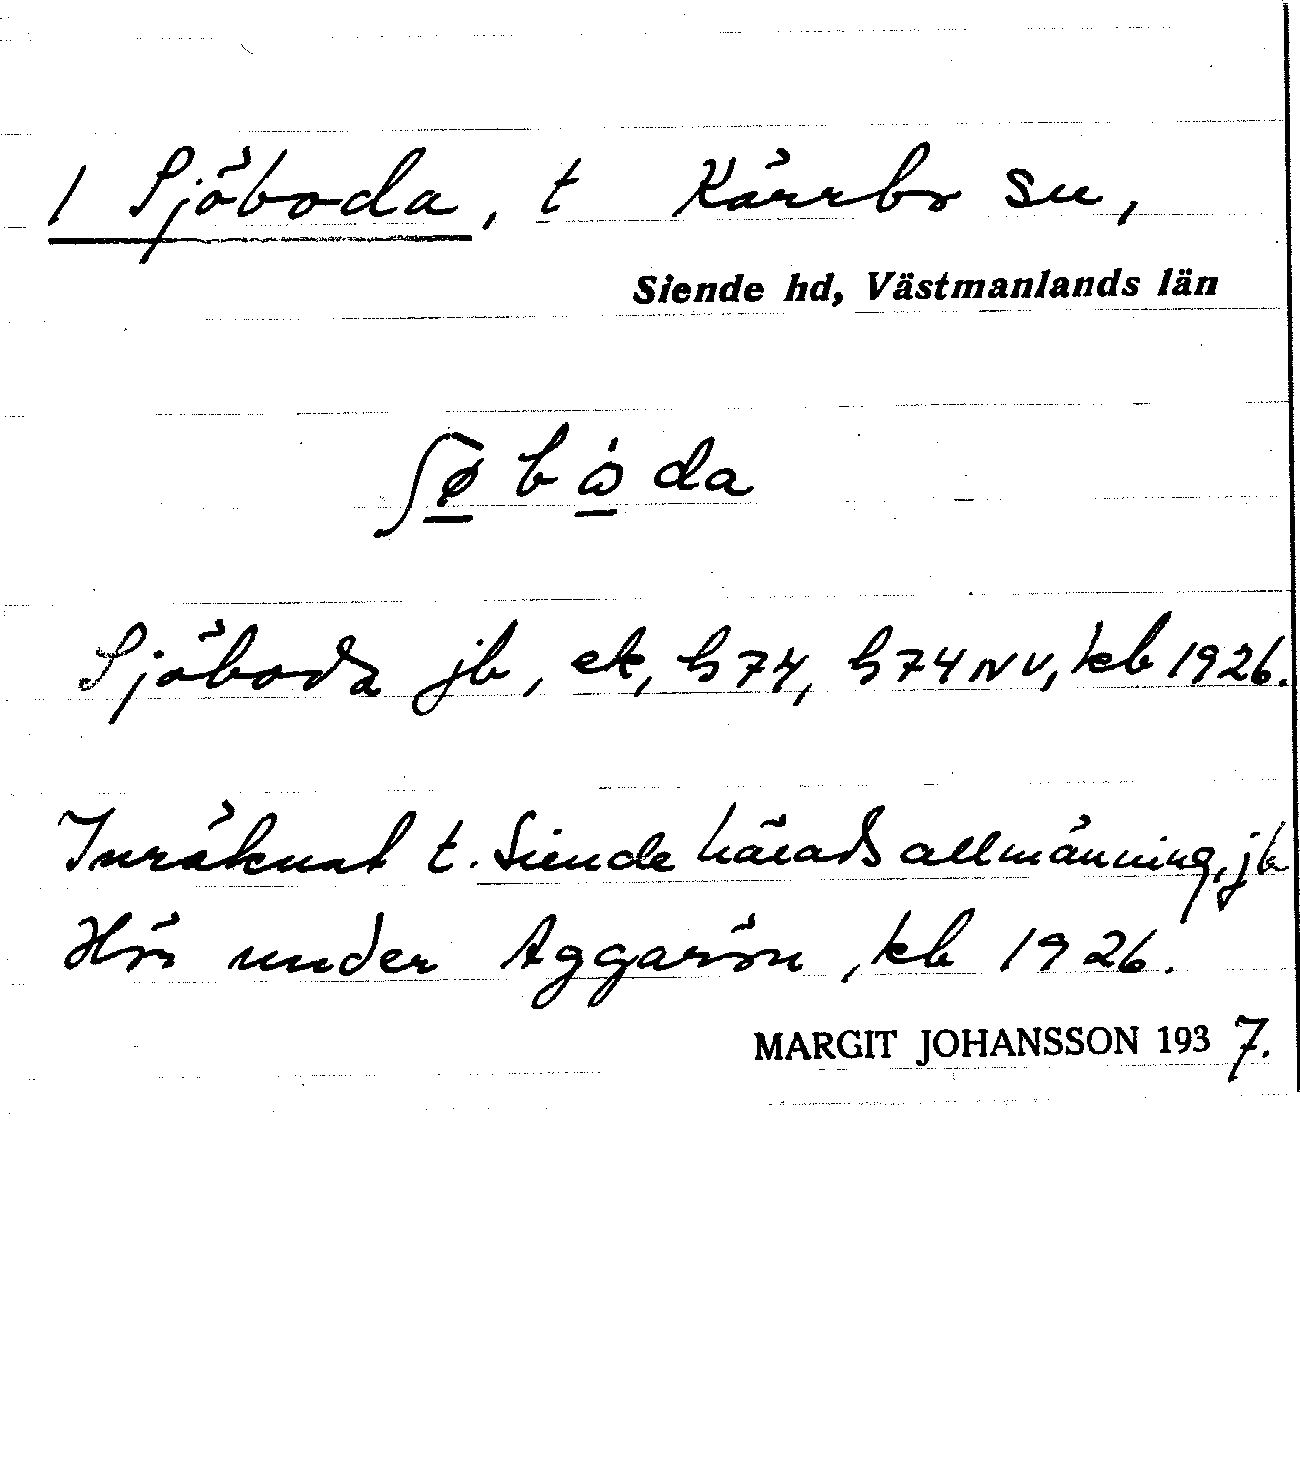 1 Sjöboda, t Kärrbo sn,
Siende hd, Västmanlands län
ʃø̱ b ὼ̱ da
Sjöboda jb, ek, h 74, h 74 NV, kb 1926.
Inräknat t. Siende härads allmänning, jb
Hör under Aggarön, kb 1926.
MARGIT JOHANSSON 1937.